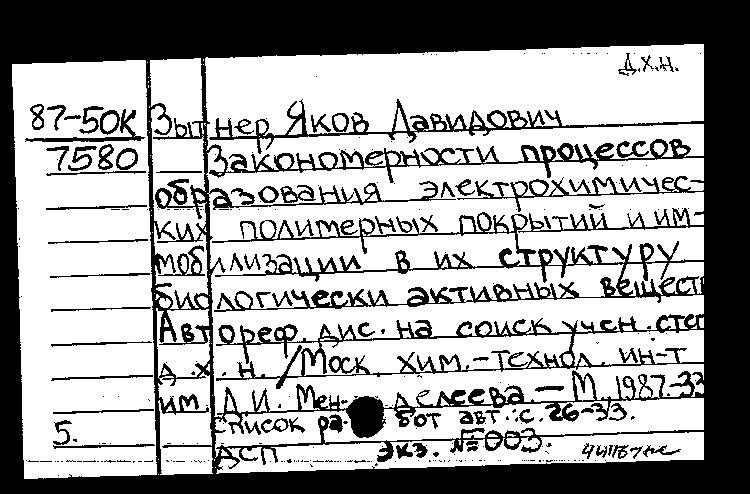 Д.Х.Н.
87-50К Зытнер, Яков Давидович
7580 Закономерности процессов
образования электрохимичес-
ких полимерных покрытий и им-
мобилизации в их структуру
биологически активных веществ
Автореф. дис. на соиск учен. степ
д.х.н. / Моск. хим.-технол. ин-т
им. Д.И. Менделеева. — М., 1987.-33
5. Список работ авт.: с. 26-33.
ДСП. экз. №003.